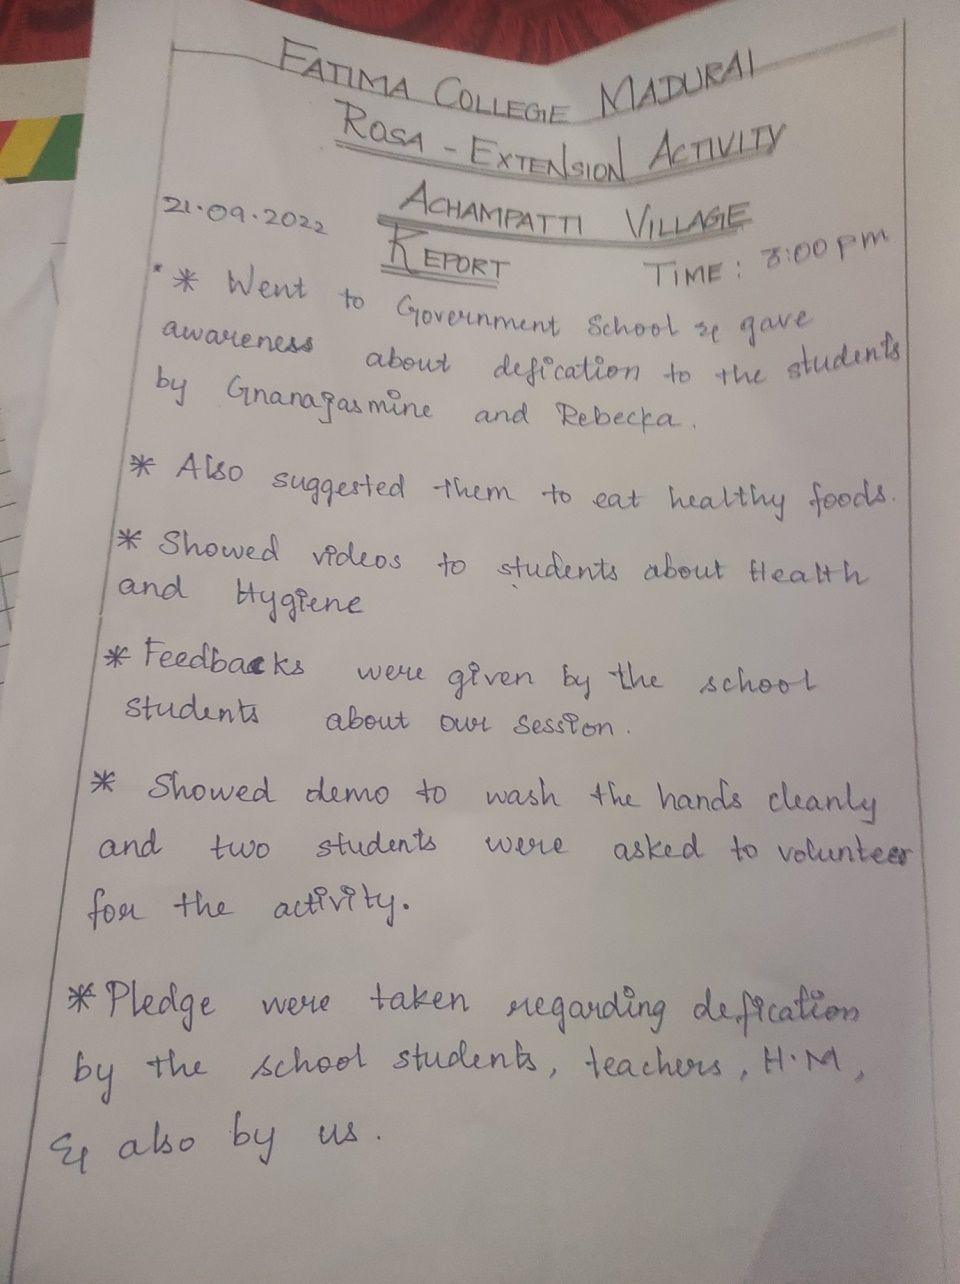 FATIMA COLLEGE MADURAI
ROSA - EXTENSION ACTIVITY
ACHAMPATTI VILLAGE
21.09.2022
REPORT
TIME: 3:00 pm
* Went to Government School & gave
awareness about defication to the students
by Gnanajasmine and Rebecka.
* Also suggested them to eat healthy foods.
* Showed videos to students about Health
and Hygiene
* Feedbacks were given by the school
students about our session.
* Showed demo to wash the hands cleanly
and two students were asked to volunteer
for the activity.
* Pledge were taken regarding defication
by the school students, teachers, H.M,
& also by us.